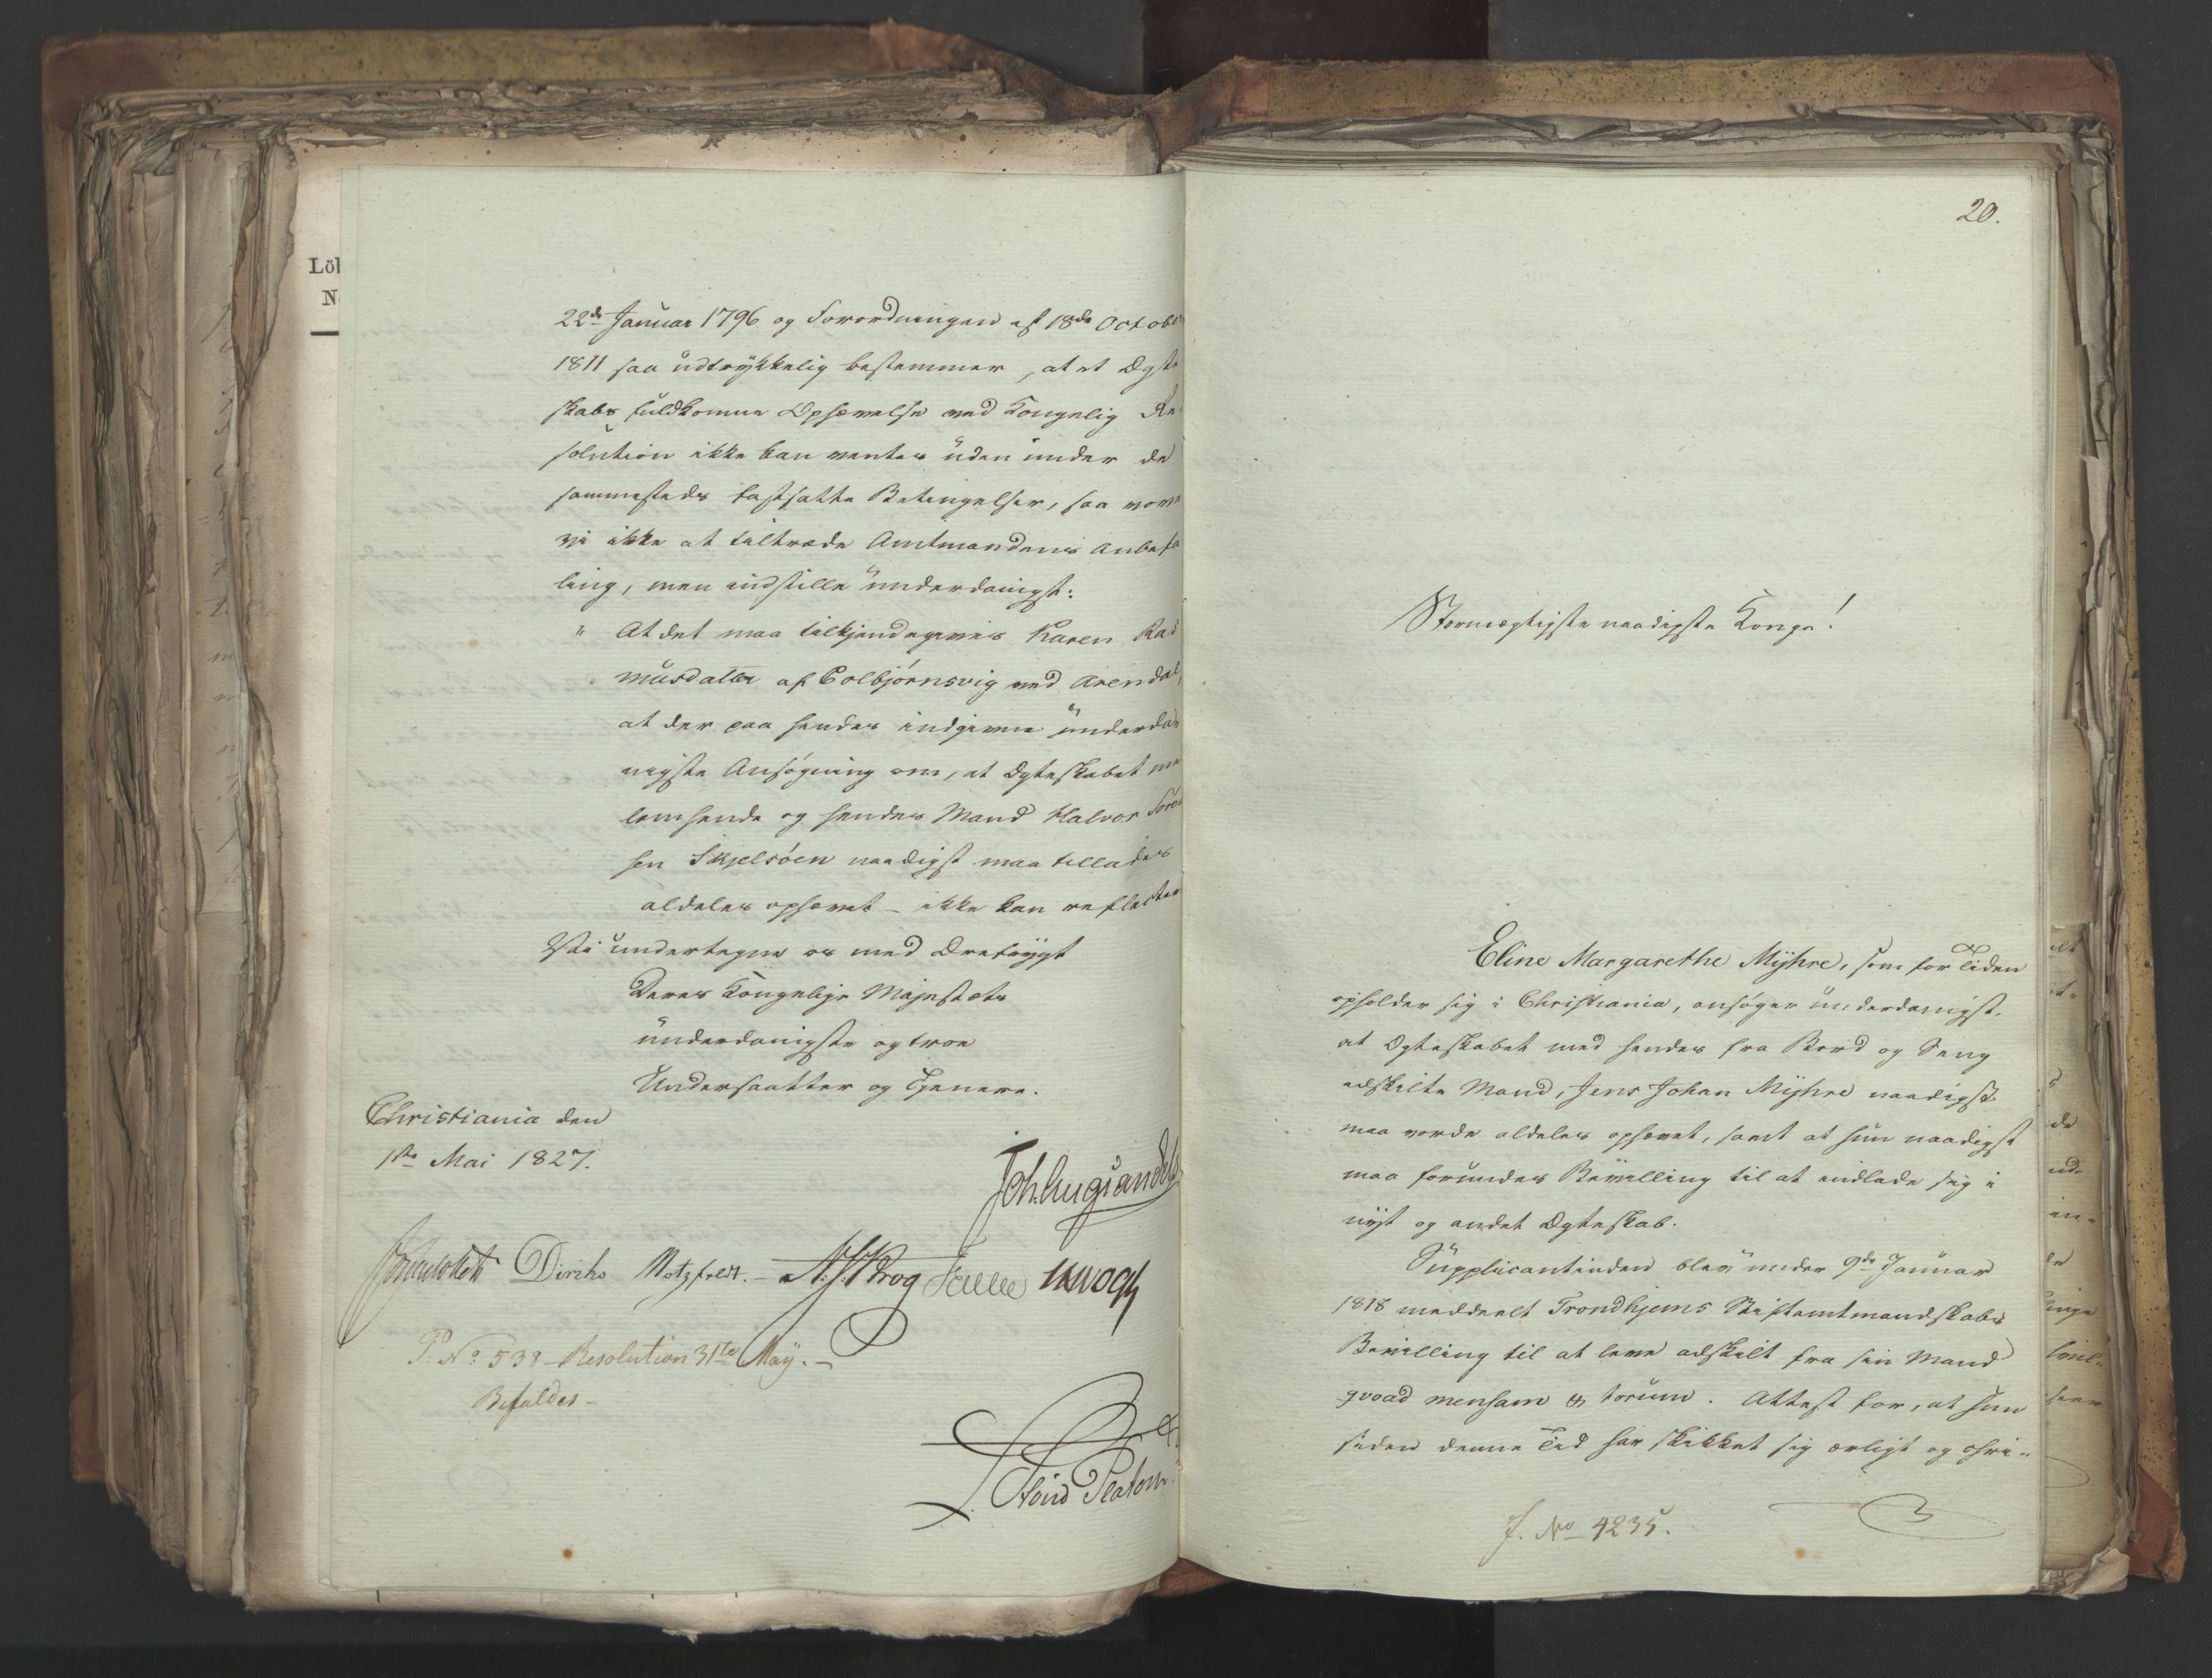 Löb
N
22de Januar 1796 og Forordningen af 18de Octobe
1811 saa udtrykkelig bestemmer, at et Ægte
skabs fuldkomne Ophævelse ved Kongelig Re
solution ikke kan ventes uden under de
sammesteds fastsatte Betingelser, saa vove
vi ikke at tiltræde Amtmandens Anbefa
ling, men indstille underdanigst:
" At det maa tilkjendegives Karen Ras
musdatter af Colbjörnsvig ved Arendal,
at der paa hendes indgivne underda
nigste Ansøgning om, at Ægteskabet me
lem hende og hendes Mand Halvor Sören
sen Skjelsöen naadigst maa tillades
aldeles ophævet – ikke kan reflecteres
Vi undertegne os med Ærefrygt
Deres Kongelige Majestæts
underdanigste og troe
Undersaatter og Tjenere.
Christiania den
1ste Mai 1827.
Joh. Aug. Sandels
Diriks Motzfeldt. – A. J. Krog JHVogt
P. No 538 – Resolution 31te Maÿ. –
Bifaldes –
20.
Stormægtigste naadigste Konge!
Eline Margarethe Mÿhre, som for Tiden
opholder sig i Christiania, ansøger underdanigst,
at Ægteskabet med hendes fra Bord og Seng
adskilte Mand, Jens Johan Mÿhre naadigst
maa vorde aldeles ophævet, samt at hun naadigst
maa forundes Bevilling til at indlade sig i
nyt og andet Ægteskab.
Supplicantinden blev under 9de Januar
1818 meddeelt Trondhjems Stiftamtmandskabs
Bevilling til at leve adskilt fra sin Mand
qvoad mensam & torum. Attest for, at hun
siden denne Tid har skikket sig ærligt og chri-
J. No 4235.